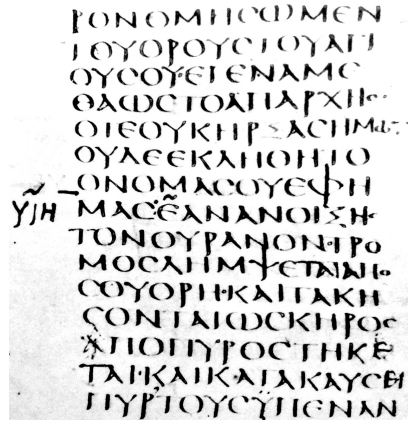 ΡΟΝΟΜΗϹΩΜΕΝ
ΤΟΥΟΡΟΥϹΤΟΥΑΓΙ
ΟΥϹΟΥ·ΕΓΕΝΑΜΕ
ΘΑΩϹΤΟΑΠΑΡΧΗϹ·
ΟΤΕΟΥΚΗΡΞΑϹΗΜΩ·
ΟΥΔΕΕΚΛΗΘΗΤΟ
ΟΝΟΜΑϹΟΥΕΦΗ
ΜΑϹ·ΕΑΝΑΝΟΙΞΗϹ
ΤΟΝΟΥΡΑΝΟΝ·ΤΡΟ
ΜΟϹΛΗΜΨΕΤΑΙΑΠΟ
ϹΟΥΟΡΗ·ΚΑΙΤΑΚΗ
ϹΟΝΤΑΙΩϹΚΗΡΟϹ
ΑΠΟΠΥΡΟϹΤΗΚΕ
ΤΑΙ·ΚΑΙΚΑΤΑΚΑΥϹΕΙ
ΠΥΡΤΟΥϹΫΠΕΝΑΝ